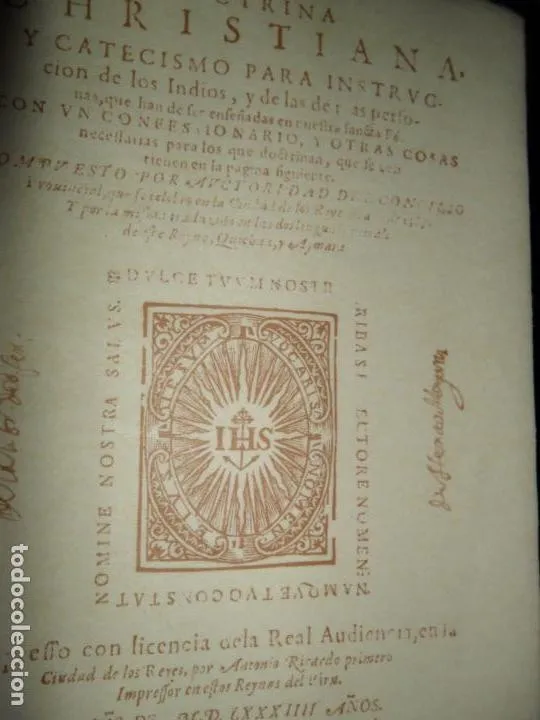 CTRINA
CHRISTIANA,
Y CATECISMO PARA INSTRVC-
cion de los Indios, y de las de mas perso-
nas, que han de ser enseñadas en nuestra sancta Fé.
CON VN CONFESSIONARIO, Y OTRAS COSAS
necessarias para los que doctrinan, que se con
tienen en la pagina siguiente.
OMPVESTO POR AVCTORIDAD DEL CONCILIO
Prouincial, que se celebro en la Ciudad de los Reyes
Y por la misma traduzido en las dos lenguas
de este Reyno, Quichua, y Aymara
DVLCE TVVM NOSTR
RIBAS PECTORE NOMEN:
NAMQVE TVO CONSTAT
NOMINE NOSTRA SALVS.
VOCABIS
NOMEN
EIVS
IESVM
IHS
resso con licencia dela Real Audiencia, en la
Ciudad de los Reyes, por Antonio Ricardo primero
Impressor en estos Reynos del Piru.
AÑO DE M.D. LXXXIIII AÑOS.
todocoleccion.net